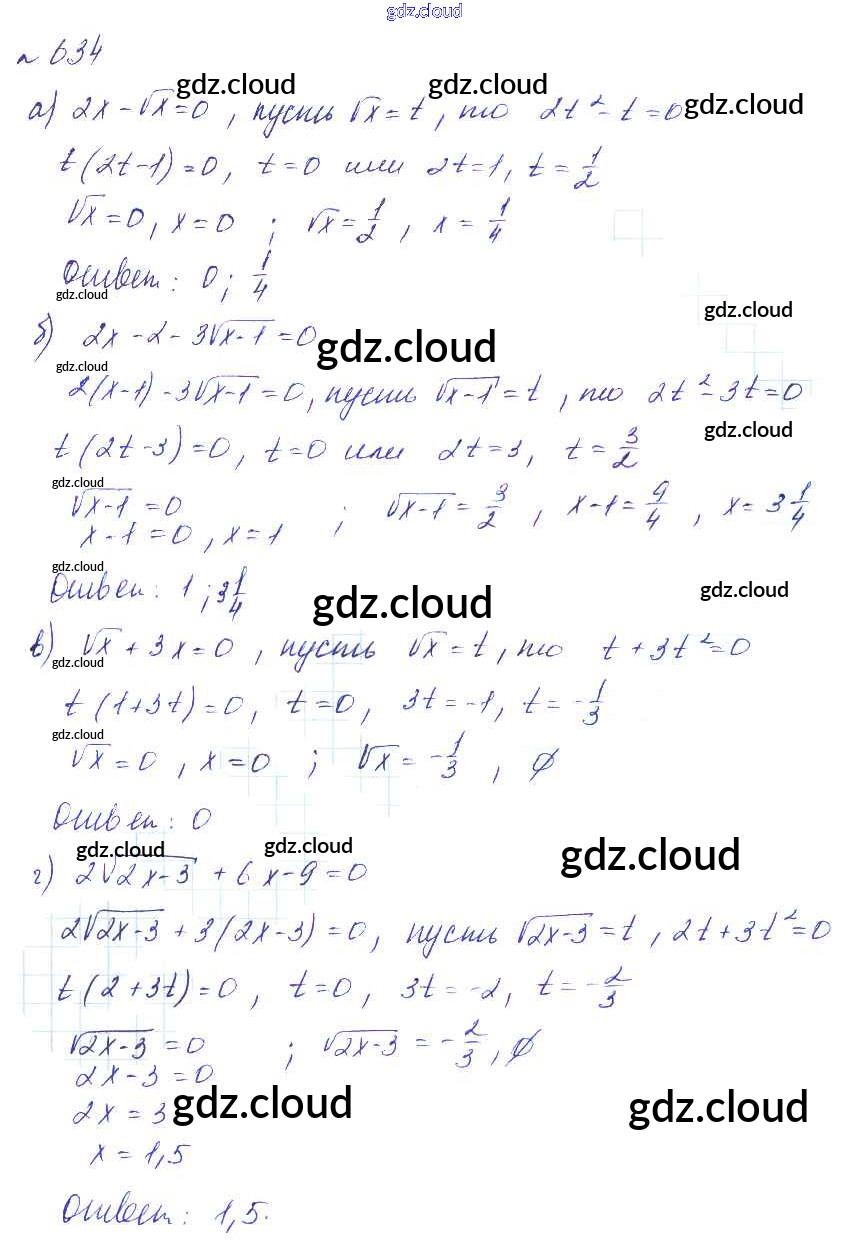 gdz.cloud
№ 634
gdz.cloud gdz.cloud gdz.cloud
а) 2x - √x = 0 , пусть √x = t , то 2t² - t = 0
t(2t-1) = 0, t = 0 или 2t = 1, t = 1/2
√x = 0, x = 0 ; √x = 1/2 , x = 1/4
Ответ: 0; 1/4
gdz.cloud gdz.cloud
б) 2x - 2 - 3√(x-1) = 0
gdz.cloud gdz.cloud
2(x-1) - 3√(x-1) = 0, пусть √(x-1) = t , то 2t² - 3t = 0
gdz.cloud
t(2t-3) = 0, t = 0 или 2t = 3, t = 3/2
gdz.cloud
√(x-1) = 0 ; √(x-1) = 3/2 , x-1 = 9/4 , x = 3 1/4
x-1 = 0, x = 1
gdz.cloud
Ответ: 1; 3 1/4
gdz.cloud gdz.cloud
в) √x + 3x = 0 , пусть √x = t, то t + 3t² = 0
gdz.cloud
t(1+3t) = 0, t = 0, 3t = -1, t = -1/3
gdz.cloud
√x = 0 , x = 0 ; √x = -1/3 , ∅
Ответ: 0
gdz.cloud gdz.cloud gdz.cloud
г) 2√(2x-3) + 6x - 9 = 0
2√(2x-3) + 3(2x-3) = 0, пусть √(2x-3) = t , 2t + 3t² = 0
t(2+3t) = 0 , t = 0, 3t = -2, t = -2/3
√(2x-3) = 0 ; √(2x-3) = -2/3 , ∅
2x-3 = 0
2x = 3
gdz.cloud gdz.cloud
x = 1,5
Ответ: 1,5.